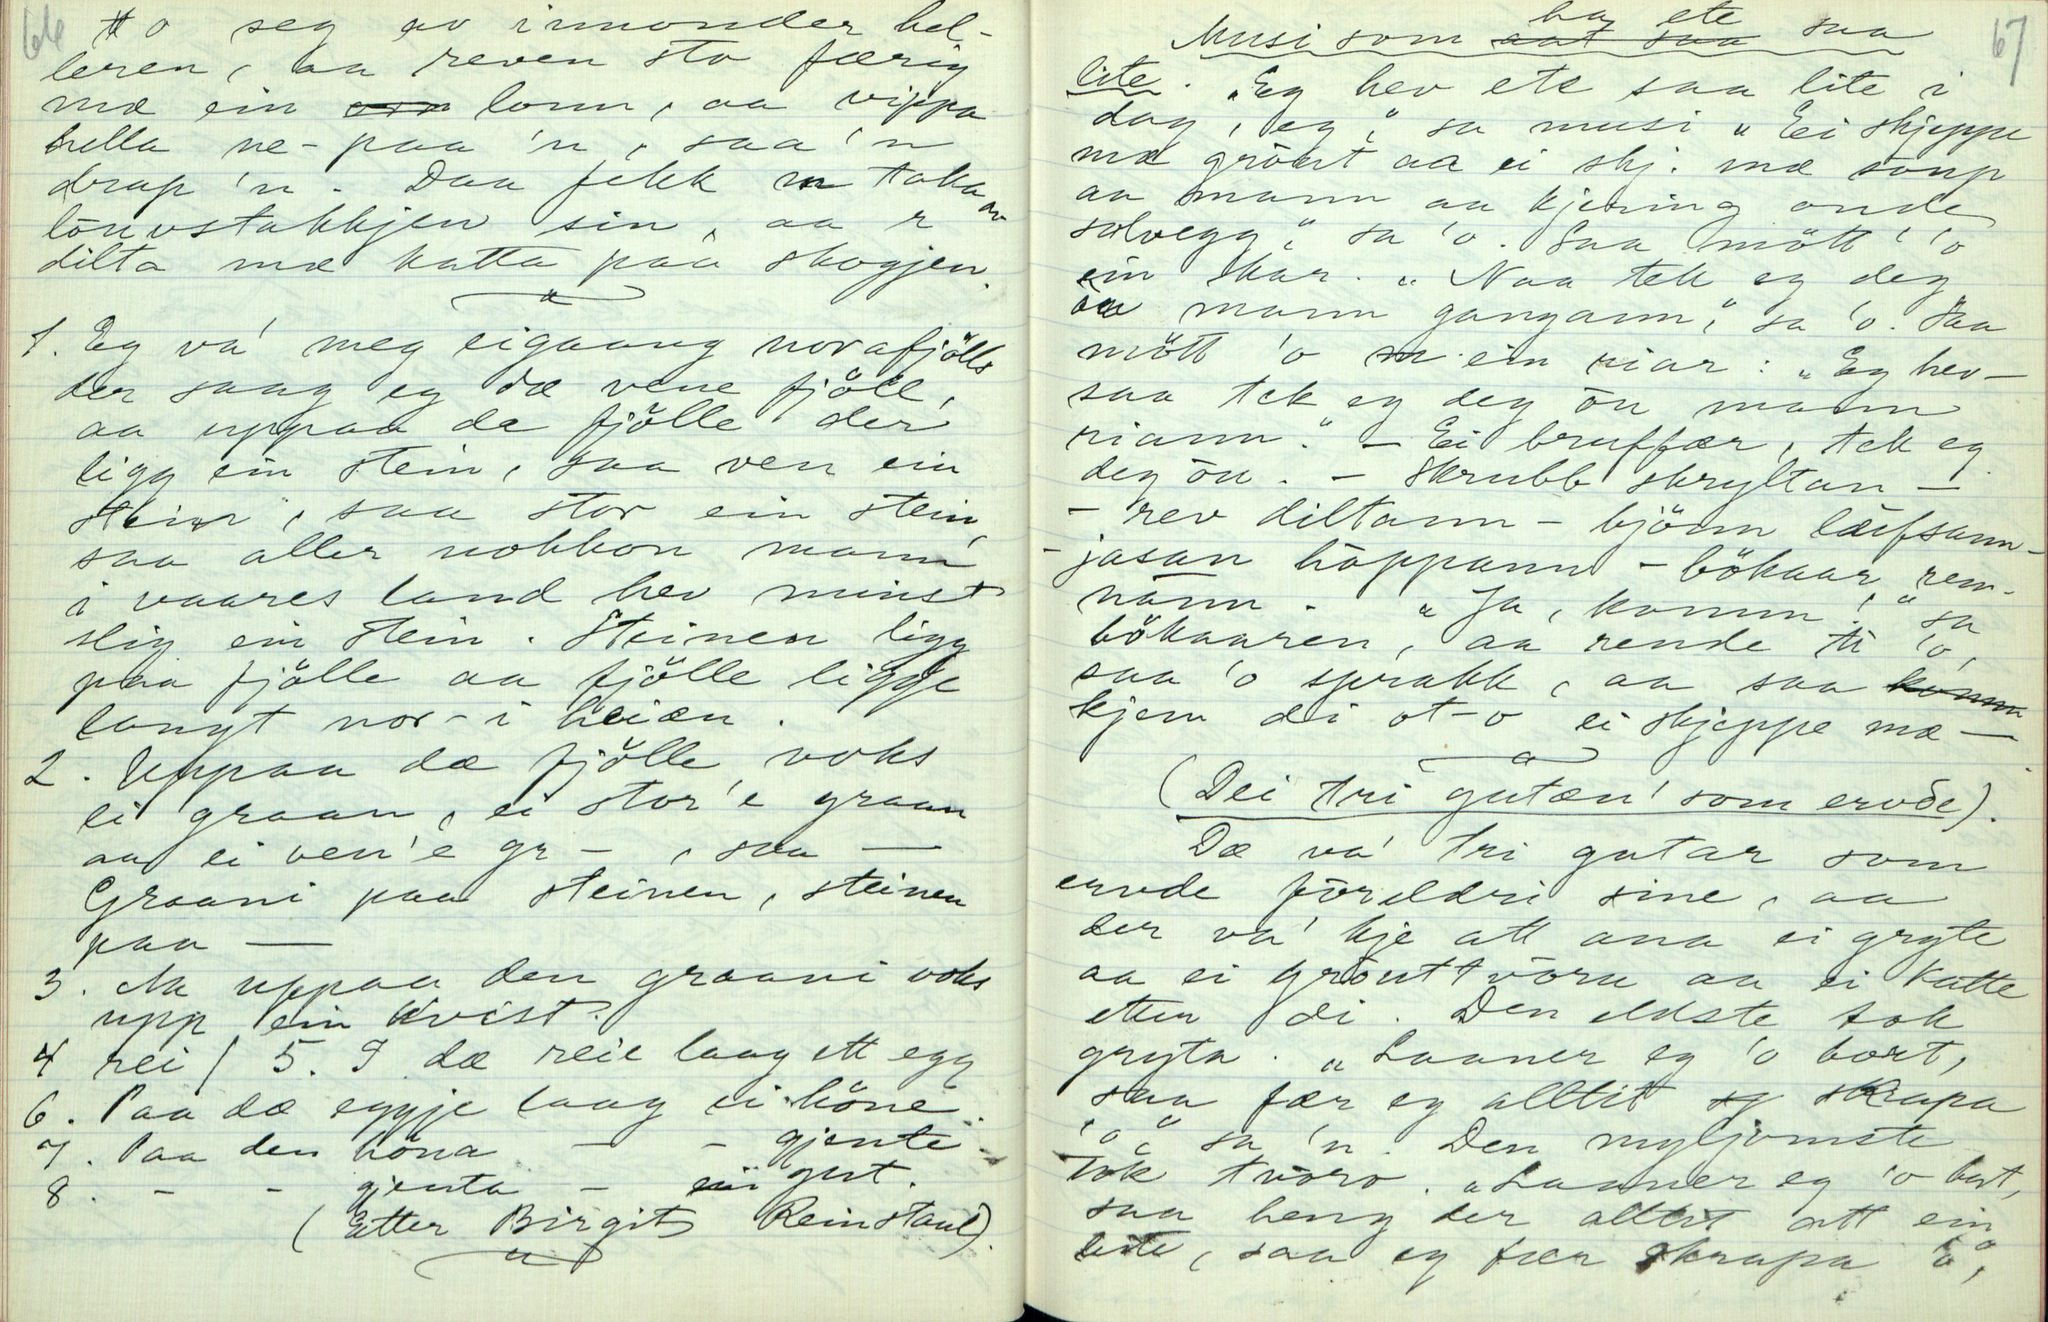 66
tt o seg av inmonder hel-
leren, aa reven sto færig
mæ ein lonn, aa vippa
hella ne-paa 'n, saa 'n
drap 'n. Daa fekk n taka av
löuvstakkjen sin, aa r
dilta mæ katta paa skogjen.
1. Eg va' meg eigaang nor afjölls
der saag eg dæ vene fjöll,
aa uppaa dæ fjölle der
ligg ein stein, saa ven ein
stein, saa stor ein stein,
saa aller nokkon mann
i vaares land hev minst
slig ein stein. Steinen ligg
paa fjölle aa fjölle ligge
langt nor-i heiæn.
2. Uppaa dæ fjölle voks
ei graan, ei stor'e graan
aa ei ven'e gr-, saa —
Graani paa steinen, steinen
paa —
3. Aa uppaa den graani voks
upp ein kvist.
4 rei / 5. I dæ reie laag ett egg
6. Paa dæ eggje laag ei höne.
7. Paa den höna - - gjente.
8. - - gjenta - ein gut.
(Etter Birgit Reinstaul).
67
Musi som ~~aat saa~~ ha ete saa
lite. "Eg hev ete saa lite i
dag, eg," sa musi "Ei skjeppe
mæ gröut aa ei skj. mæ soup
aa mann aa kjering onde
solvegg," sa 'o. Saa mött 'o
ein skar. "Naa tek eg deg
öu mann gangann," sa 'o. Saa
mött 'o ein riar: "Eg hev —
saa tek eg deg öu mann
riann." - Ei bruffær, tek eg
deg öu. - Skrubb skryltan —
- rev diltann - bjönn læifsann -
- jasan höppann - bökaar ren-
nann. "Ja, komm!" sa
bökaaren, aa rende ti 'o,
saa 'o sprakk, aa saa ~~komm~~
kjem di ot-o ei skjeppe mæ —
(Dei tri gutæn' som ervde).
Dæ va' tri gutar som
ervde föreldri sine, aa
der va' kje att ana ei gryte
aa ei gröuttvöru aa ei katte
etter di. Den eldste tok
gryta. "Laaner eg 'o bort,
saa fær eg alltit skrapa
'o," sa 'n. Den myljomste
tok tvöro. "Laaner eg 'o bort,
saa heng der alltit att ein
lite, saa eg fær skrapa 'o",